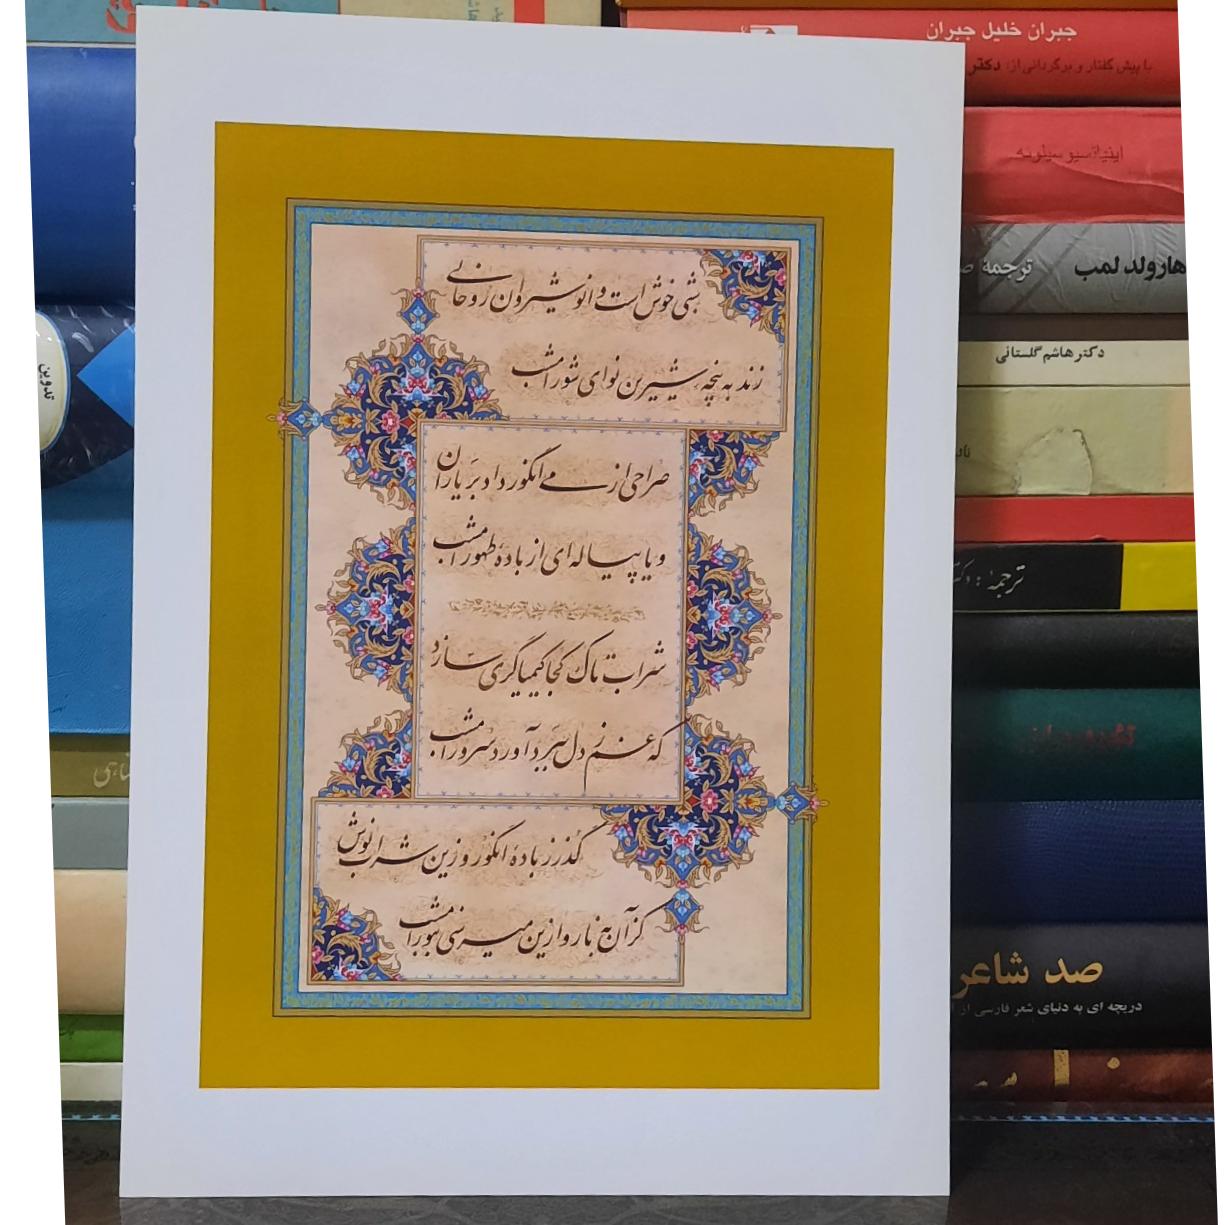 شبی خوش است و انوشیروان روحانی
زند به پنجه شیرین نوای شور امشب
صراحی از می انگور داد بر یاران
و یا پیاله ای از باده طهور امشب
شراب تاک کجا کیمیاگری سازد
که غم ز دل ببرد آورد سرور امشب
گذر ز باده انگور و زین شراب بنوش
کز آن به نار و ازین میرسی بنور امشب
جبران خلیل جبران
با پیش گفتار و برگردانی از: دکتر
اینیاتسیو سیلونه
هارولد لمب
ترجمه
دکتر هاشم گلستانی
ترجمه : دکتر
صد شاعر
دریچه ای به دنیای شعر فارسی از
تدوین